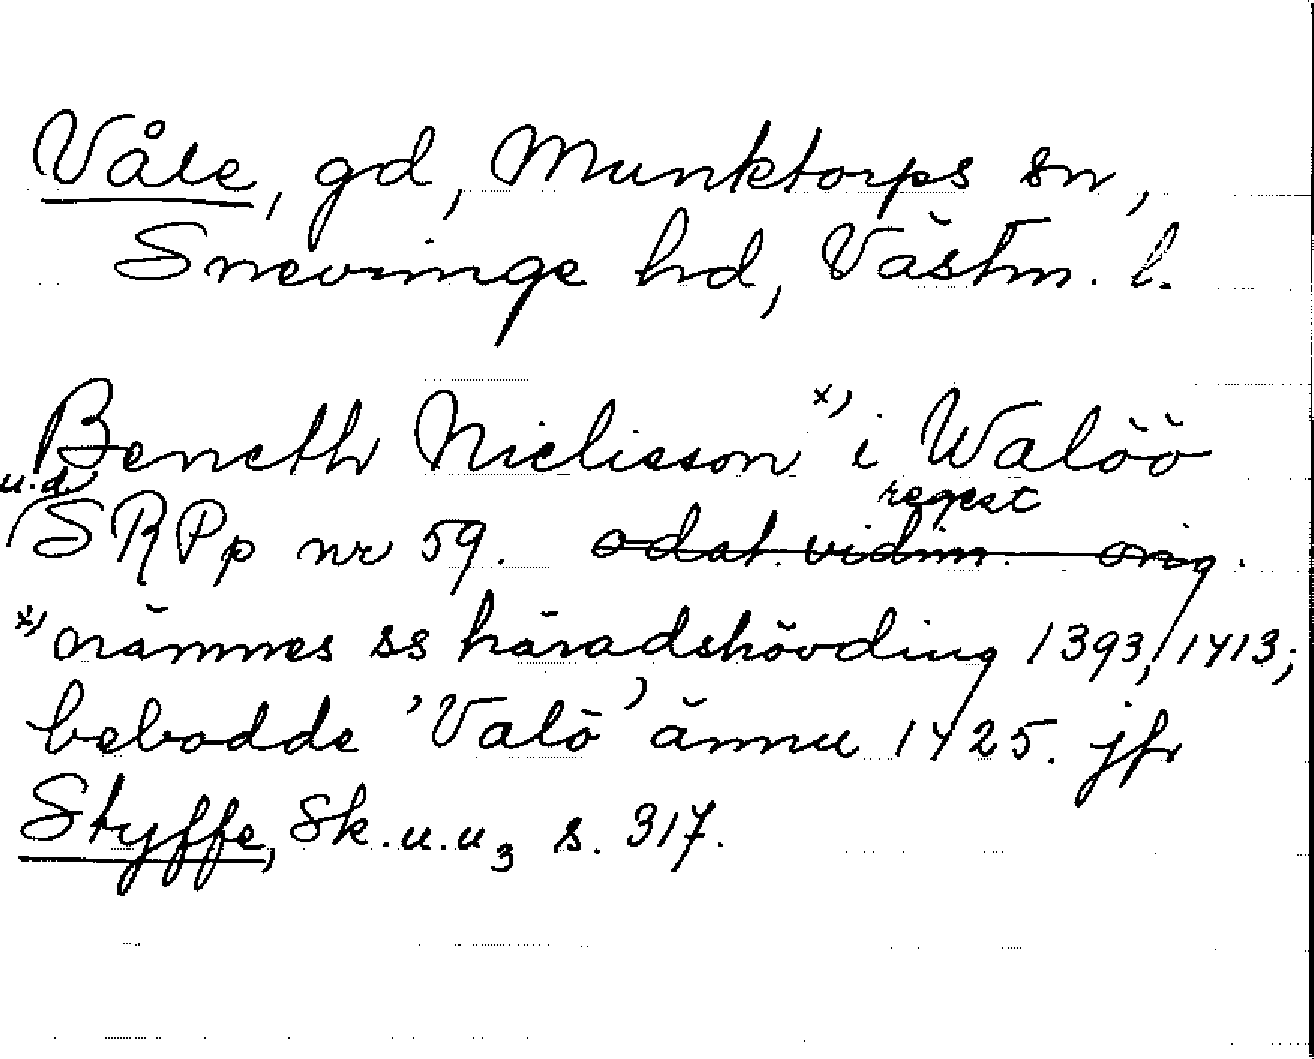 Våle, gd, Munktorps sn,
Snevringe hd, Västm. l.
Beneth Nielisson x) i Walöö
u.d. regest
SRPp nr 59. odat. vidim. orig.
x) nämnes ss häradshövding 1393, 1413;
bebodde 'Valö' ännu 1425. jfr
Styffe, Sk.u.u3 s. 317.